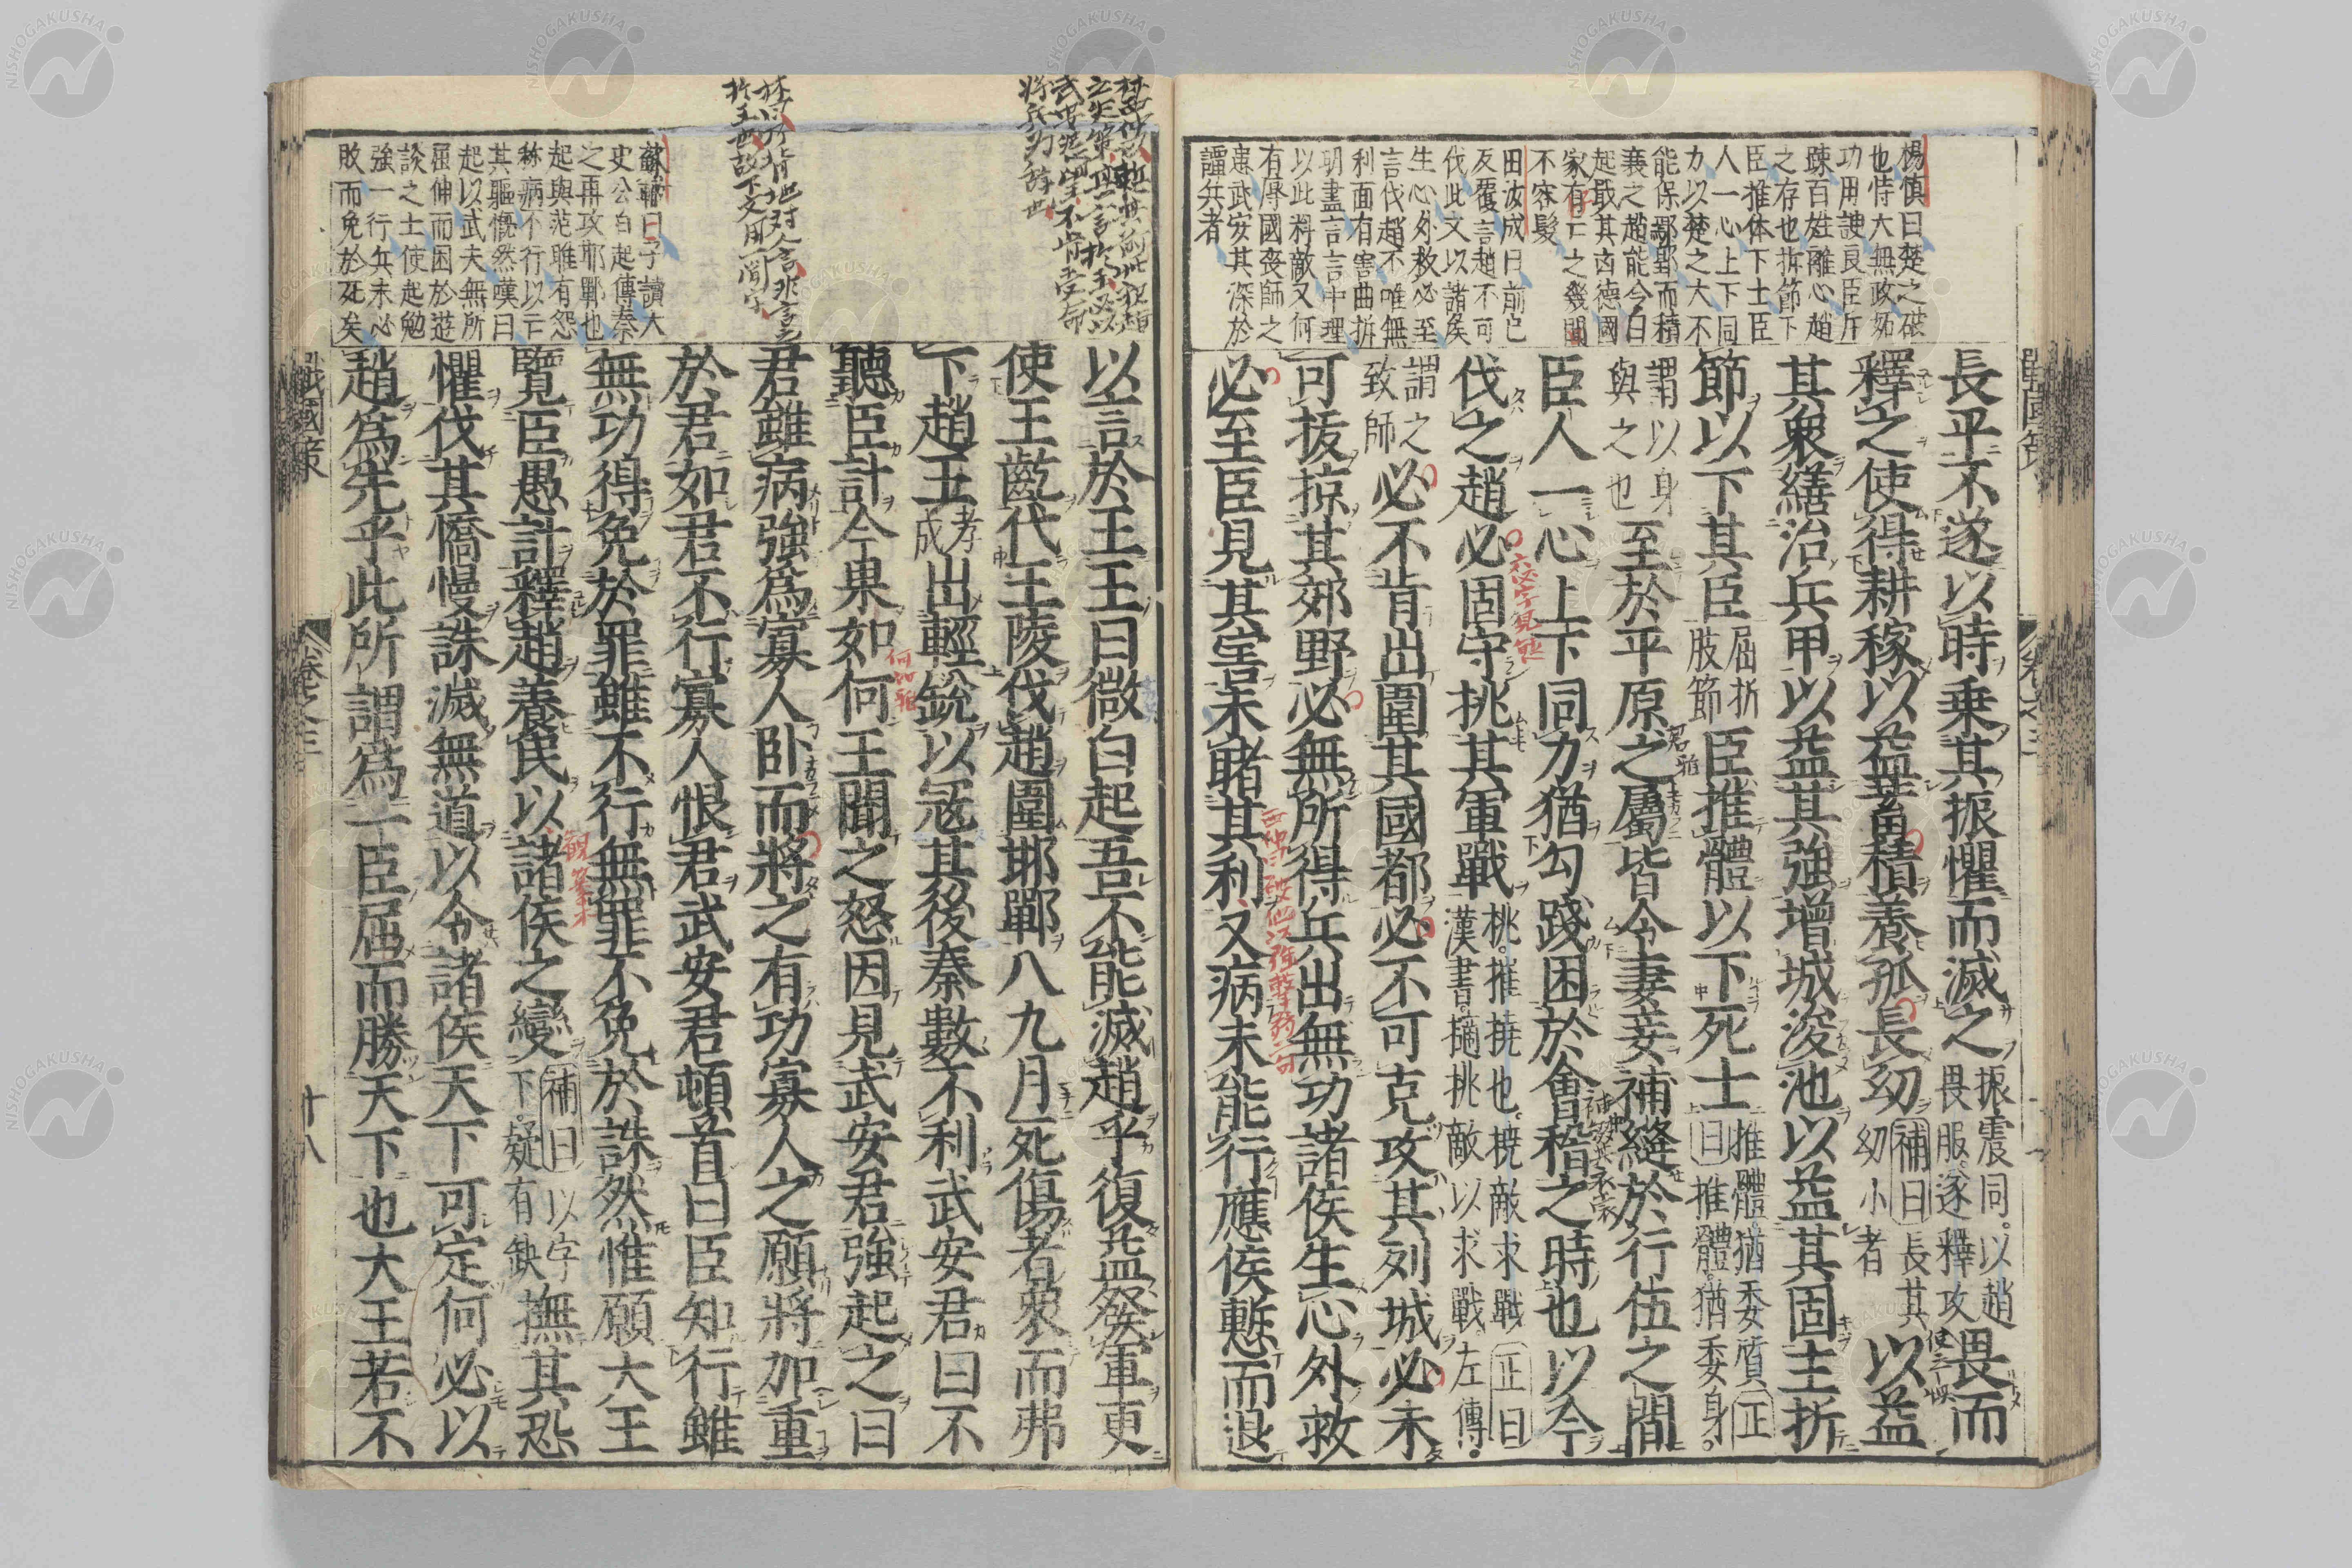 戰國策
卷之三
楊慎曰楚之破
也恃大無政妬
功用諛良臣斥
踈百姓離心趙
之存也折節下
臣推体下士臣
人一心上下同
力以楚之大不
能保鄢郢而積
衰之趙能今白
起戢其凶德國
家有亡之幾間
不容髮
田汝成曰前已
反覆言趙不可
伐此文以諸侯
生心外救必至
言伐趙不唯無
利面有害曲折
明盡言言中理
以此料敵又何
有辱國喪師之
患武安其深於
謹兵者
長平不遂以時乗其振懼而滅之振震同以趙畏服遂釋攻畏而
釋之使得耕稼以益蓄積養孤長幼補曰長其幼小者以益
其衆繕治兵甲以益其強增城浚池以益其固主折
節以下其臣屈折肢節臣推體以下死士推體猶委質正曰推體猶委身
謂以身與之也至於平原之屬皆令妻妾補縫於行伍之間
臣人一心上下同力猶勾踐困於會稽之時也以今
伐之趙必固守挑其軍戰挑摧撓也撓敵求戰正曰漢書擿挑敵以求戰左傳
謂之致師必不肯出圍其國都必不可克攻其列城必未
可拔掠其郊野必無所得兵出無功諸侯生心外救
必至臣見其害未睹其利又病未能行應侯慙而退
六必字見
以言於王王曰微白起吾不能滅趙乎復益發軍更
使王齕代王陵伐趙圍邯鄲八九月死傷者衆而弗
下趙王孝成出輕銳以冦其後秦數不利武安君曰不
聽臣計今果如何王聞之怒因見武安君強起之曰
君雖病強爲寡人卧而將之有功寡人之願將加重
於君如君不行寡人恨君武安君頓首曰臣知行雖
無功得免於罪雖不行無罪不免於誅然惟願大王
覽臣愚計釋趙養民以諸侯之變補曰以字下疑有缺撫其恐
懼伐其憍慢誅滅無道以令諸侯天下可定何必以
趙爲先乎此所謂爲一臣屈而勝天下也大王若不
蘇轍曰予讀大
史公白起傳秦
之再攻邯鄲也
起與范雎有怨
称病不行以亡
其軀慨然嘆曰
起以武夫無所
屈伸而困於遊
談之士使起勉
強一行兵未必
敗而免於死矣
戰國策
卷之三
十八